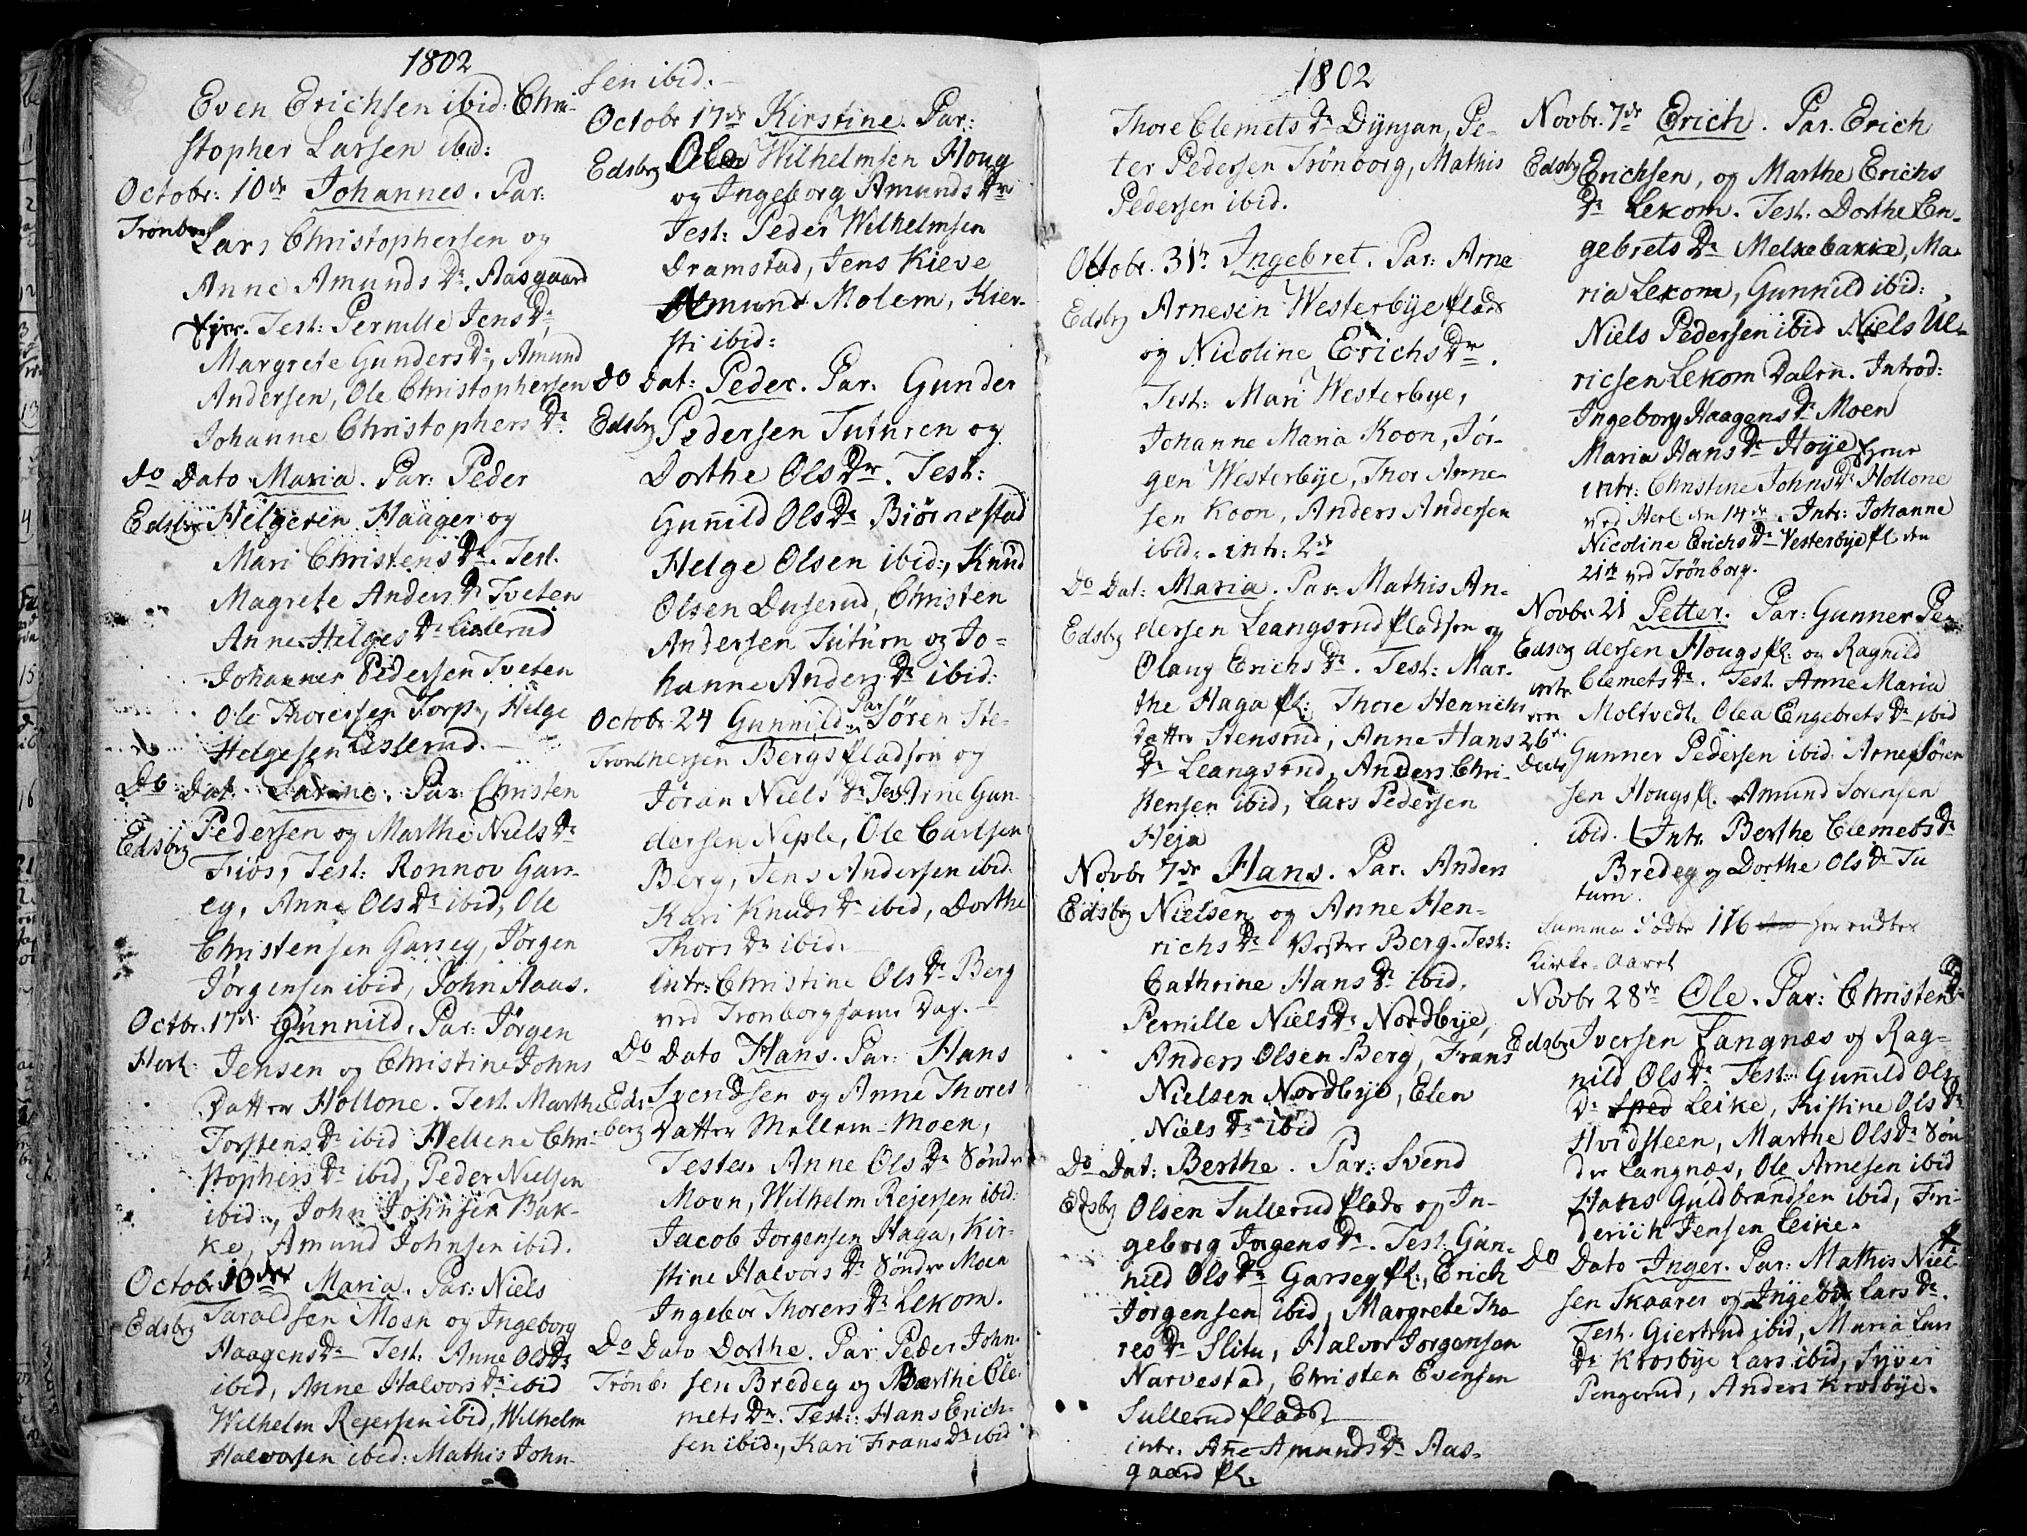 1802
Even Erichsen ibid: Chri-
stopher Larsen ibid:
Octobr: 10de Johannes. Par:
Trønborg Lars Christophersen og
Anne Amunds Dr. Aasgaard
Ejer. Test: Pernille Jens Dr,
Margrete Gunders Dr, Amund
Andersen, Ole Christophersen
Johanne Christophers Dr.
Do Dato Maria. Par: Peder
Edsbrg Helgesen Haager og
Mari Christens Dr. Test.
Magrete Anders Dr Tveten
Anne Helges Dr Lislerud
Johannes Pedersen Tveten
Ole Thoresen Torp, Helge
Helgesen Lislerud.
Do Dat: Larine. Par: Christen
Edsbrg Pedersen og Marthe Niels Dr
Fiøs, Test: Ronnov Gars-
eg, Anne Ols Dr ibid, Ole
Christensen Garseg, Jørgen
Jørgensen ibid, John Haas.
Octbr. 17de Gunnild. Par: Jørgen
Herl: Jensen og Christine Johns
Datter Hollone. Test. Marthe
Torstens Dr ibid Hellene Chri-
stophers Dr ibid, Peder Nielsen
ibid:, John Johnsen Bak-
ke, Amund Johnsen ibid.
Octobr 10de Maria. Par: Niels
Edsbrg Taraldsen Moen og Ingeborg
Haagens Dr Test. Anne Ols Dr
ibid, Anne Halvors Dr ibid
Wilhelm Rejersen ibid, Wilhelm
Halvorsen ibid: Mathis John-
sen ibid.
Octobr 17de Kirstine. Par:
Edsbrg Ole Wilhelmsen Houg
og Ingeborg Amunds Dr
Test: Peder Wilhelmsen
Dramstad, Jens Kieve
Amund Molem, Kier-
sti ibid:
Do Dat: Peder. Par: Gunder
Edsbrg Pedersen Tuturen og
Dorthe Ols Dr. Test:
Gunnild Ols Dr Biørnestad
Helge Olsen ibid:, Knud
Olsen Duserud, Christen
Andersen Tuturn og Jo-
hanne Anders Dr ibid:
Octobr 24 Gunnild Par Søren Ste-
Trøn hersen Bergs pladsen og
Jøran Niels Dr Test Arne Gun-
dersen Neple, Ole Carlsen
Berg, Jens Andersen ibid.
Kari Knuds Dr ibid, Dorthe
Thors Dr ibid.
Intr: Christine Ols Dr Berg
ved Tronborg samme Dag.
Do Dato Hans. Par: Hans
Eds- Svendsen og Anne Thores
berg Datter Mellem-Moen,
Testes. Anne Ols Dr Søndr
Moen, Wilhelm Rejersen ibid:
Jacob Jorgensen Haga, Kir-
stine Halvors Dr Søndr Moen
Ingebor Thorers Dr Lekom.
Do Dato Dorthe. Par: Peder John-
Trønb: sen Bredeg og Berthe Cle-
mets Dr. Test:: Hans Erich-
sen ibid:, Kari Frans Dr ibid
1802
Thore Clemets Dr Dynjan, Pe-
ter Pedersen Trønborg, Mathis
Pedersen ibid.
Octobr. 31te Ingebret. Par: Arne
Edsbrg Arnesen Westerbye plads
og Nicoline Erichs Dr.
Test: Mari Westerbye,
Johanne Maria Koon, Jør-
gen Westerbye, Thor Arne-
sen Koon, Anders Andersen
ibid: intr: 2de
Do Dat: Maria. Par: Mathis An-
Edsbrg dersen Leangsrud pladsen og
Olaug Erichs Dr. Test: Mar-
the Haga pl: Thore Henrichs
Datter Stensrud, Anne Hans
Dr Leangsrud, Anders Chri-
stensen ibid, Lars Pedersen
Heja
Novbr 7de Hans. Par. Anders
Edsbrg Nielsen og Anne Hen-
richs Dr Vester Berg. Test:
Cathrine Hans Dr ibid,
Pernille Niels Dr Nordbye,
Anders Olsen Berg, Frans
Nielsen Nordbye, Elen
Niels Dr ibid
Do Dat: Berthe. Par: Svend
Edsbrg Olsen Sullerud plads og In-
geborg Jorgens Dr. Test: Gun-
nild Ols Dr Garseg pl:, Erich
Jorgensen ibid, Margrete Tho-
res Dr Slitu, Halvor Jorgensen
Narvestad, Christen Evensen
Sullerud plads
intr. Anne Amunds Dr Aas-
gaard pl.
Novbr. 7de Erich. Par. Erich
Edsbrg Erichsen, og Marthe Erichs
Dr Lekom. Test. Dorthe En-
gebrets Dr Melnebakke, Ma-
ria Lekom, Gunnild ibid:,
Niels Pedersen ibid Niels Ul-
ricsen Lekom Dalen. Introd:
Ingeborg Haagens Dr Moen
Maria Hans Dr Hoye
intr: Christine Johns Dr Hollone
ved Herl den 14de. Intr: Johanne
Nicoline Erichs Dr Vesterbye pl den
21de ved Trønborg.
Novbr 21 Petter. Par: Gunner Pe-
Edsbrg dersen Hougs pl. og Ragnild
intr. Clemets Dr. Test. Anne Maria
den Moltvedt, Olea Engebrets Dr ibid
26de Gunner Pedersen ibid: Arne Søren
Decbr sen Hougs pl. Amund Sorensen
ibid. Intr. Berthe Clemets Dr
Bredeg og Dorthe Ols Dr Tu
turn.
Summa Fødte 116 her endter
Kirke-Aaret
Novbr 28de Ole. Par: Christen
Edsbrg Iversen Langnæs og Rag-
nild Ols Dr Test: Gunnild Ols
Dr Leike, Kistine Ols Dr
Hvidsteen, Marthe Ols Dr Søn
der Langnæs, Ole Arnesen ibid
Hans Guldbrandsen ibid, Fri-
derich Jensen Leike.
Do Dato Inger. Par: Mathis Niel-
sen Skaarer og Ingebor Lars Dr.
Test. Giertrud ibid, Maria Lars
Dr Krosbye Lars ibid, Syver
Pengerud, Anders Krosbye.